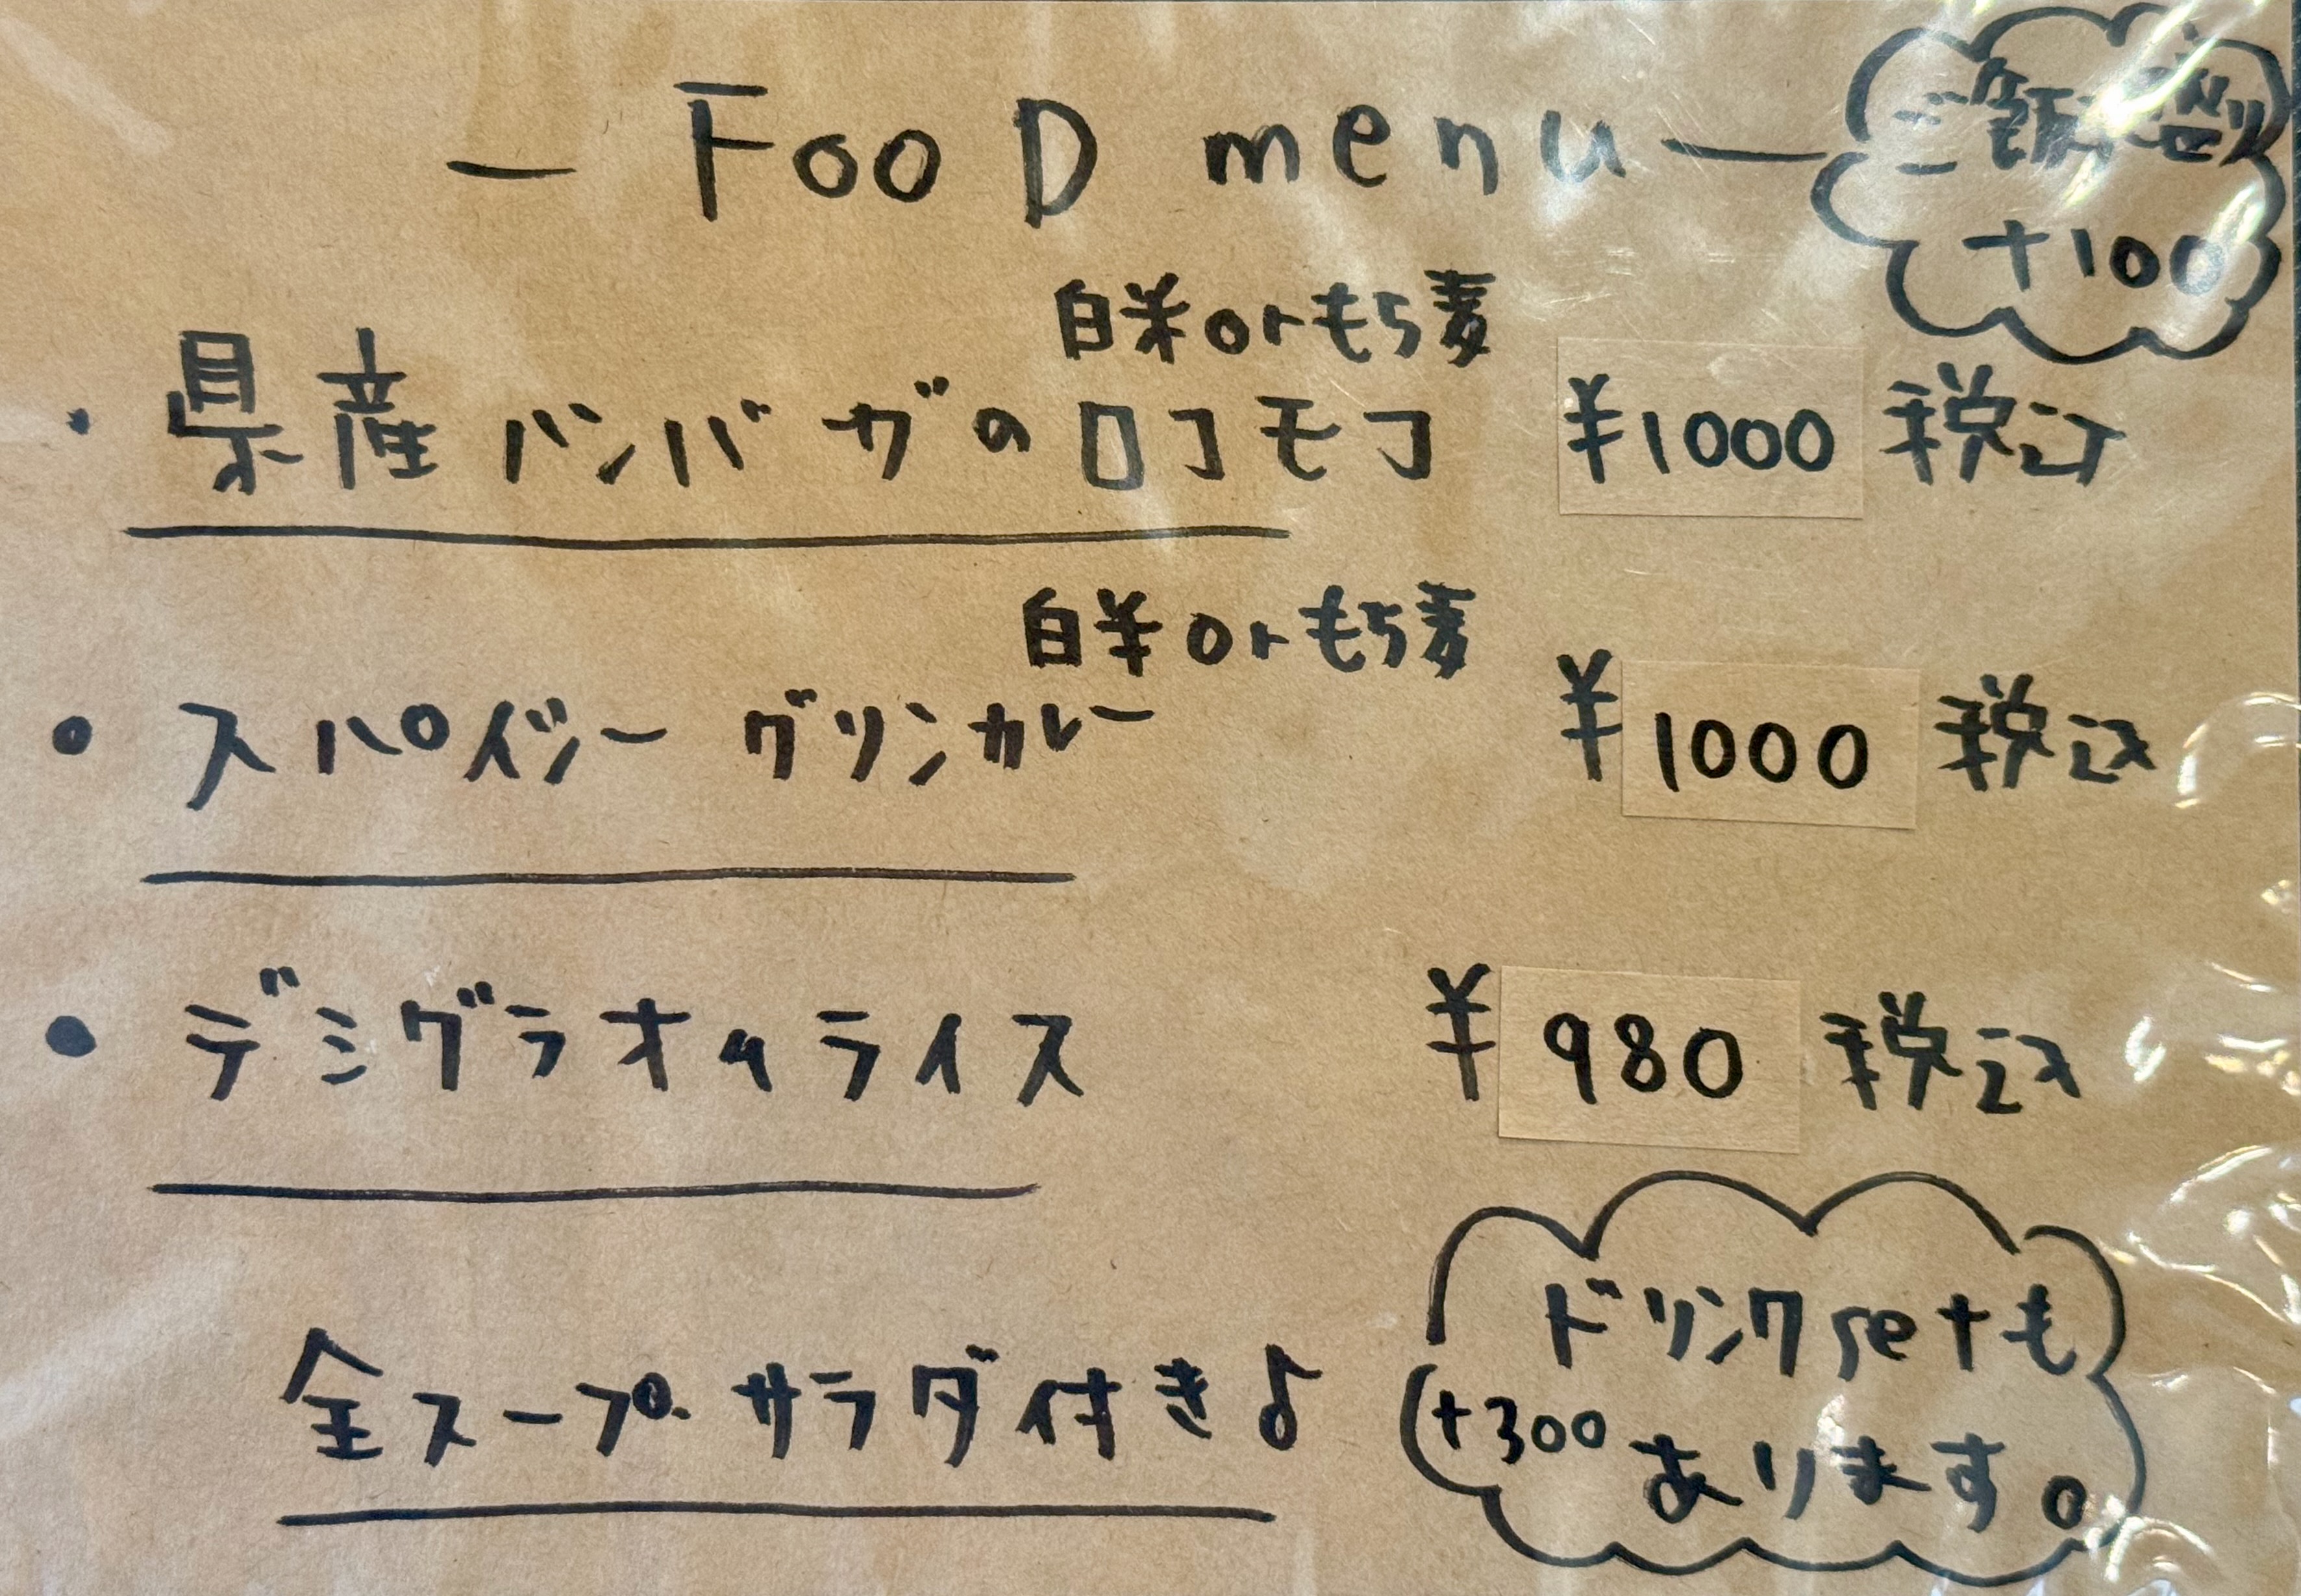 — FooD menu —
ご飯大盛り
+100
白米orもち麦
・県産ハンバーグのロコモコ ¥1000 税込
白米orもち麦
・スパイシーグリンカレー ¥1000 税込
・デミグラオムライス ¥980 税込
全スープ・サラダ付き♪
ドリンクsetも
(+300 あります。